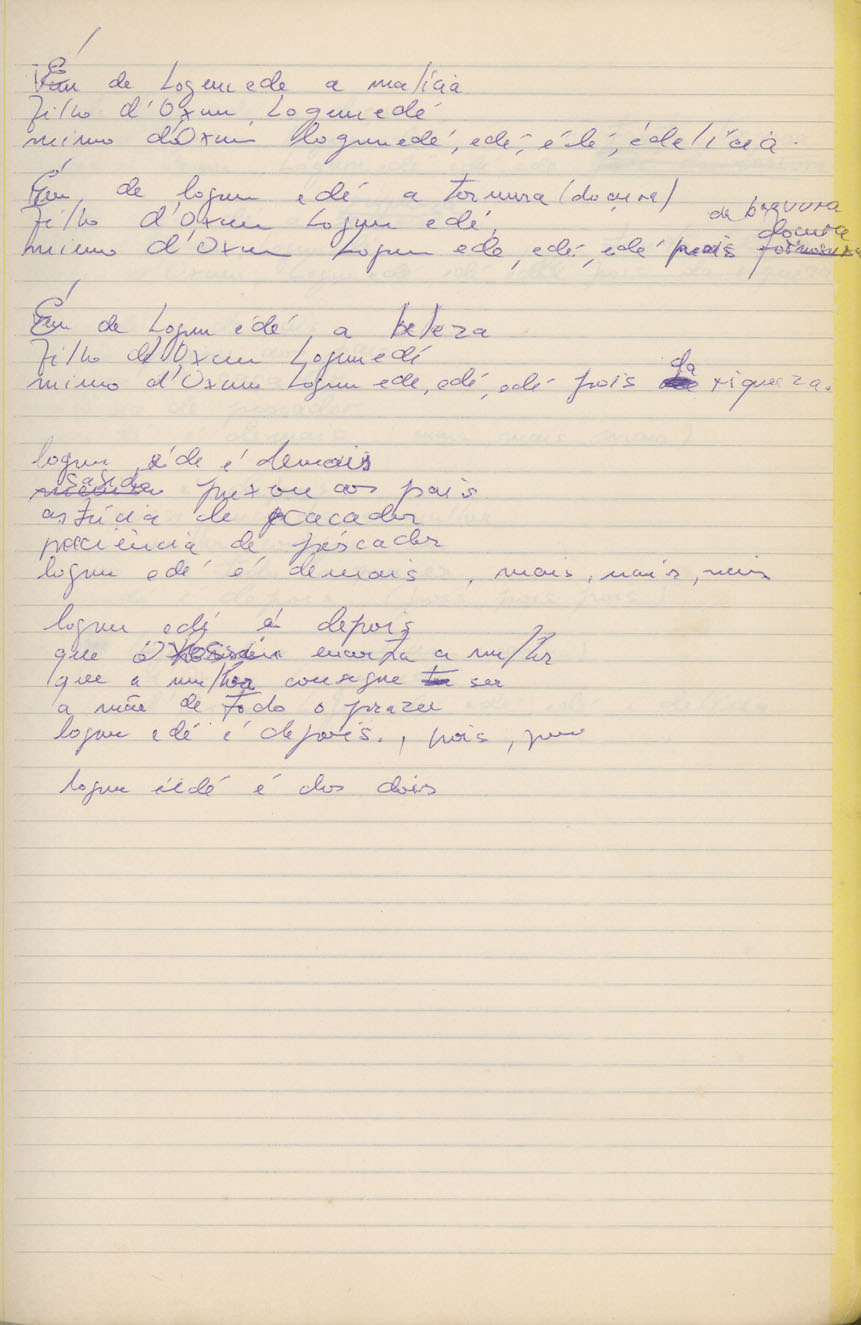 É de Logun ede a malícia
filho d'Oxum Logun edé
mimo d'Oxum logun edé, edé, é lé, é delícia.
É de logun edé a ternura (doçura)
filho d'Oxum Logun edé,
da bravura
doçura
mimo d'Oxum Logun ede, edé, edé pois formosura
É de Logun édé, a beleza
filho d'Oxum Logun edé
mimo d'Oxum Logun ede, edé, edé pois da riqueza.
logun éde é demais
sabido puxou aos pais
astúcia de caçador
paciência de pescador
logun edé é demais, mais, mais, mais
logun edé é depois
que Oxossi encontra a mulher
que a mulher consegue ser
a mãe de todo o prazer
logun edé é depois., pois, pois
logun édé é dos dois